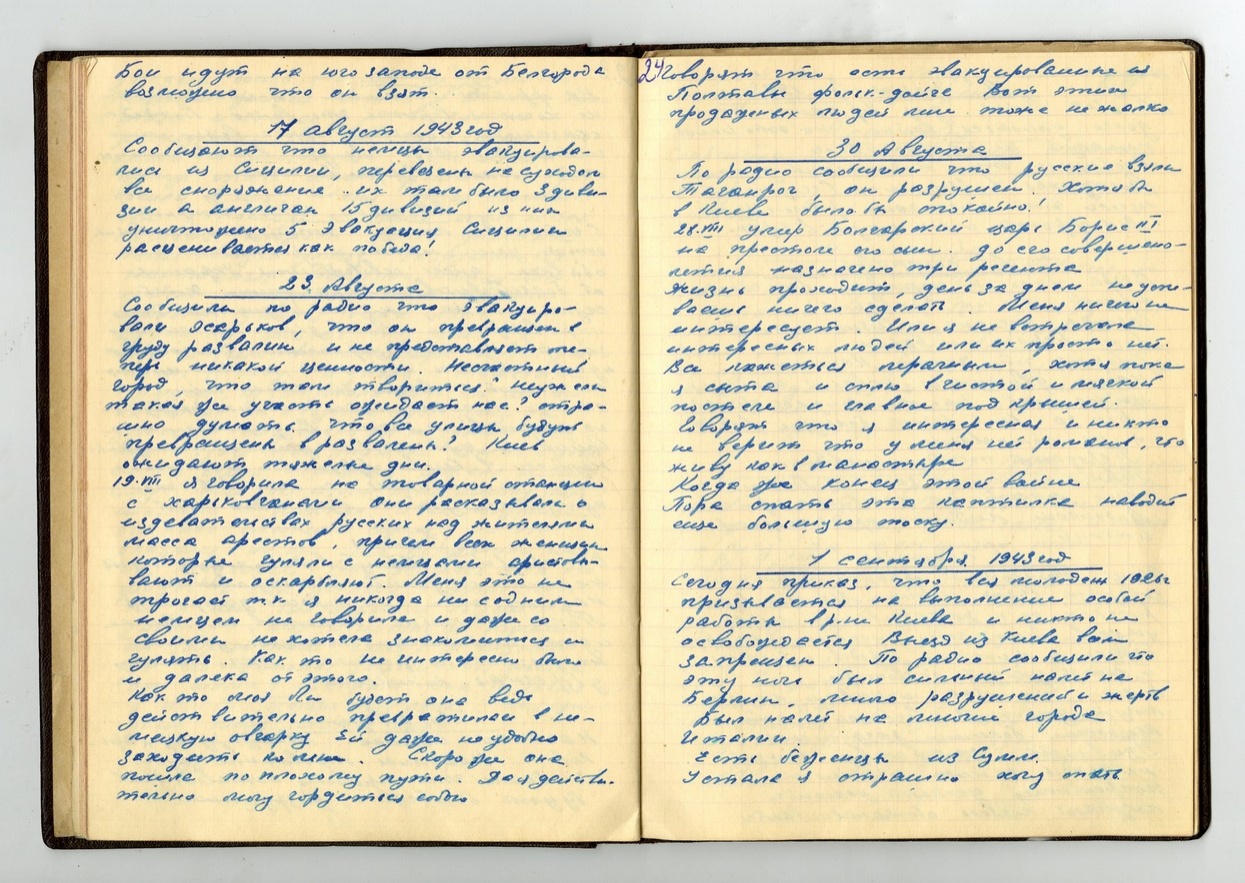 Бои идут на юго западе от Белгорода
возможно что он взят.
17 август 1943 год
Сообщают что немцы эвакуирова-
лись из Сицилии, перевезены на суходол
все снаряжение. их там было 3 диви-
зии а англичан 15 дивизий из них
уничтожено 5. Эвакуация Сицилии
расценивается как победа!
23. Августа
Сообщили по радио что эвакуиро-
вали Харьков, что он превращен в
груду развалин и не представляет те-
перь никакой ценности. Несчастный
город, что там творится? неужели
такая же участь ожидает нас? стра-
шно думать, что все улицы будут
превращены в развалины? Киев
ожидают тяжелые дни.
19.VIII я говорила на товарной станции
с харьковчанами они рассказывали о
издевательствах русских над жителями
масса арестов, причем всех женщин
которые гуляли с немцами аристовы-
вают и оскарбляют. Меня это не
трогает т.к. я никогда ни с одним
немцем не говорила и даже со
своими не хотела знакомится и
гулять. Как то не интересно было
и далека от этого.
Как то моя Ли будет она ведь
действительно превратилась в не-
мецкую овчарку ей даже неудобно
заходить ко мне. Скоро же она
пошла по плохому пути. Да я действи-
тельно могу гордиться собою
24 Говорят что есть эвакуированные из
Полтавы фольк-дойче Вот этих
продажных людей мне тоже не жалко
30 Августа
По радио сообщили что русские взяли
Таганрог, он разрушен. Хотя бы
в Киеве было бы спокойно!
28.VIII умер Болгарский царь Борис III
на престоле его сын. до его совершено-
летия назначено три регента
Жизнь проходит, день за днем не успе-
ваешь ничего сделать. Меня ничего не
интересует. Или я не встречала
интересных людей или их просто нет.
Все кажется мрачным, хотя пока
я сыта и сплю в чистой и мягкой
постели и главное под крышей.
Говорят что я интересная и никто
не верит что у меня нет романов, что
живу как в манастыре
Когда же конец этой войне
Пора спать эта коптилка наводит
еще большую тоску.
1 сентября 1943 год
Сегодня приказ, что вся молодежь 1926г
призывается на выполнение особой
работы в р-не Киева и никто не
освобождается Выезд из Киева всем
запрещен. По радио сообщили что
эту ночь был сильный налет на
Берлин, много разрушений и жертв
Был налет на многие города
Италии.
Есть беженцы из Сумм.
Устала я страшно хочу спать